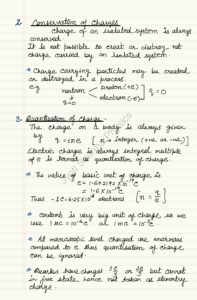 2. Conservation of Charges
Charge of an isolated system is always
conserved
It is not possible to creat or destroy net
charge carried by an isolated system
* Charge carrying particles may be created
or destroyed in a process.
e.g.
neutron < proton (+e) electron (-e) ] q = 0
q = 0
3. Quantisation of Charge -
The charge on a body is always given
by q = ±ne [ n → integer (+ve or -ve) ]
Electric charge is always integral multiple
of e is termed as quantisation of charge
* The value of basic unit of charge is
e = 1.602192 × 10⁻¹⁹ C
= 1.6 × 10⁻¹⁹ C
Thus -1C = 6.25 × 10¹⁸ electrons [ n = q/e ]
* Coulomb is very big unit of charge so we
use 1 μC = 10⁻⁶ C or 1 mC = 10⁻³ C
* At macroscopic level charges are enormous
compared to e thus quantisation of charge
can be ignored
* Quarks have charges but cannot
in free state hence not taken as elementry
charge.